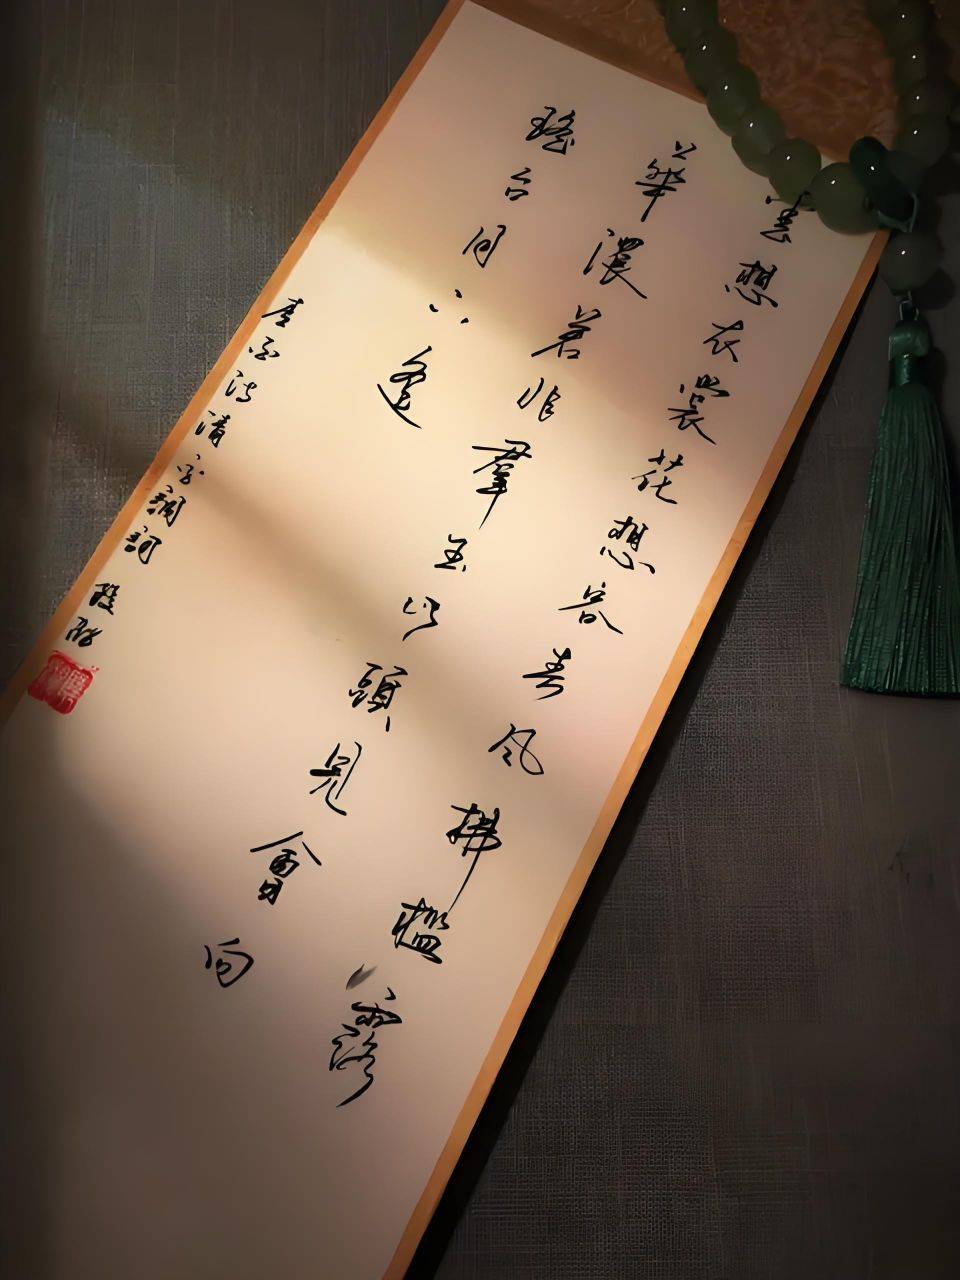 雲想衣裳花想容春风拂檻露
華濃若非羣玉山頭見會向
瑤台月下逢
李白詩清平調詞 段